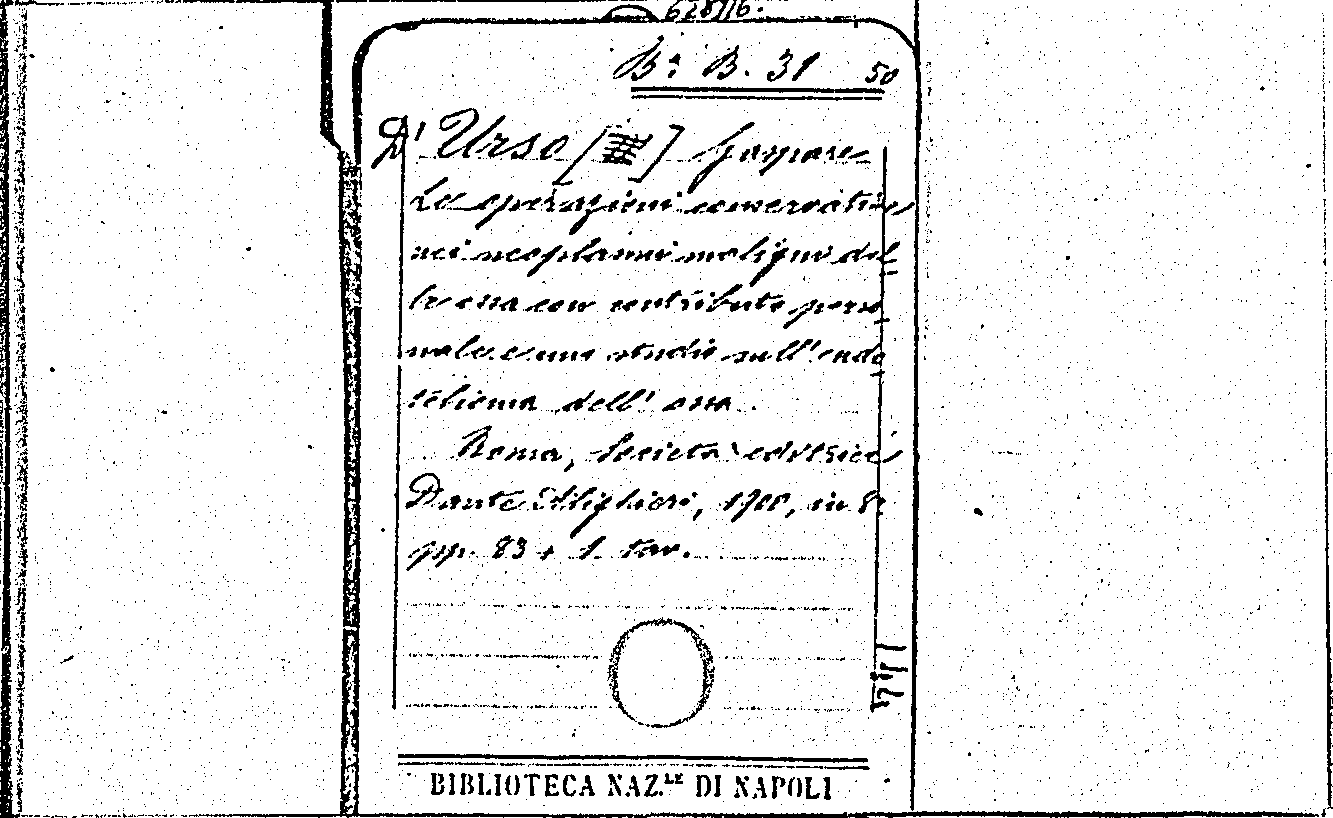 628116.
Bª B. 31 50
D'Urso [ ] Gaspare
Le operazioni conservatives
nei neoplasmi maligni del
le ossa con contributo perso
nale e uno studio sull'endo
telioma dell' ossa.
Roma, Società editrice
Dante Alighieri, 1900, in 8º
pp. 83 + 1. tav.
BIBLIOTECA NAZ.LE DI NAPOLI